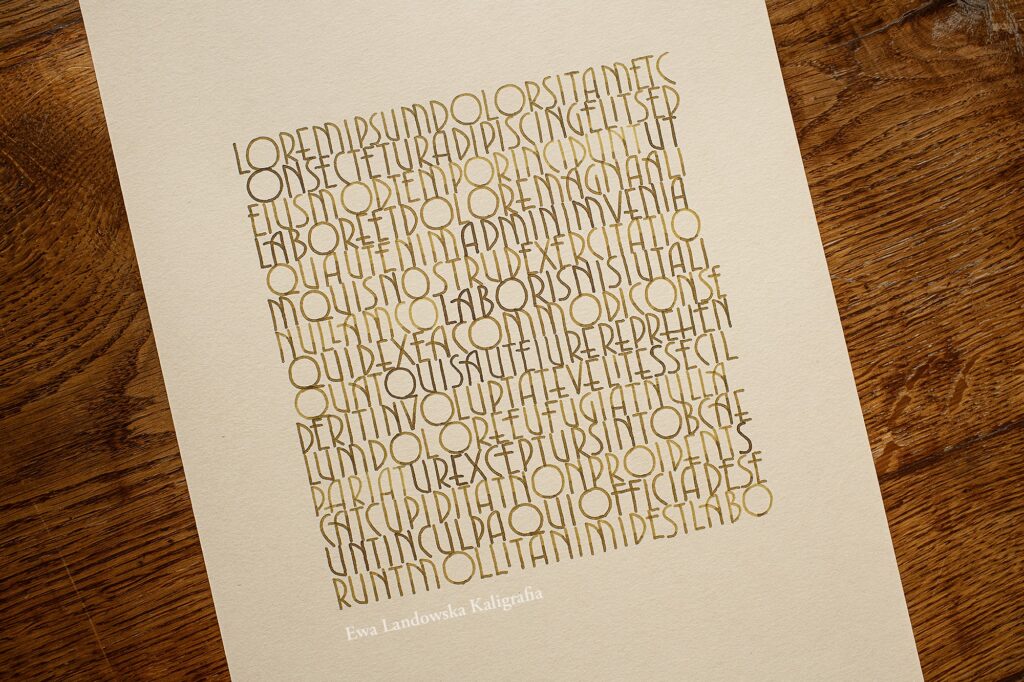 LOREMIPSUMDOLORSITAMETC
ONSECTETURADIPISCINGELITSED
EIUSMODTEMPORINCIDUNTUT
LABOREETDOLOREMAGNAALI
QUAUTENIMADMINIMVENIA
MQUISNOSTRUDEXERCITATIO
NULLAMCOLABORISNISIUTALI
QUIDEXEACOMMODICONSE
QUATQUISAUTEIUREREPREHEN
DERITINVOLUPTATEVELITESSECIL
LUMDOLOREEUFUGIATNULLA
PARIATUREXCEPTURSINTOBCAE
CATCUPIDITATNONPROIDENTS
UNTINCULPAQUIOFFICIADESE
RUNTMOLLITANIMIDESTLABO
Ewa Landowska Kaligrafia